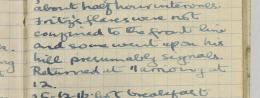 about half hour intervals.
Fritz's flares were not
confined to the front line
and some went up on his
hill presumably signals.
Returned at 11 arriving at
12.
15-12-16 hot breakfast